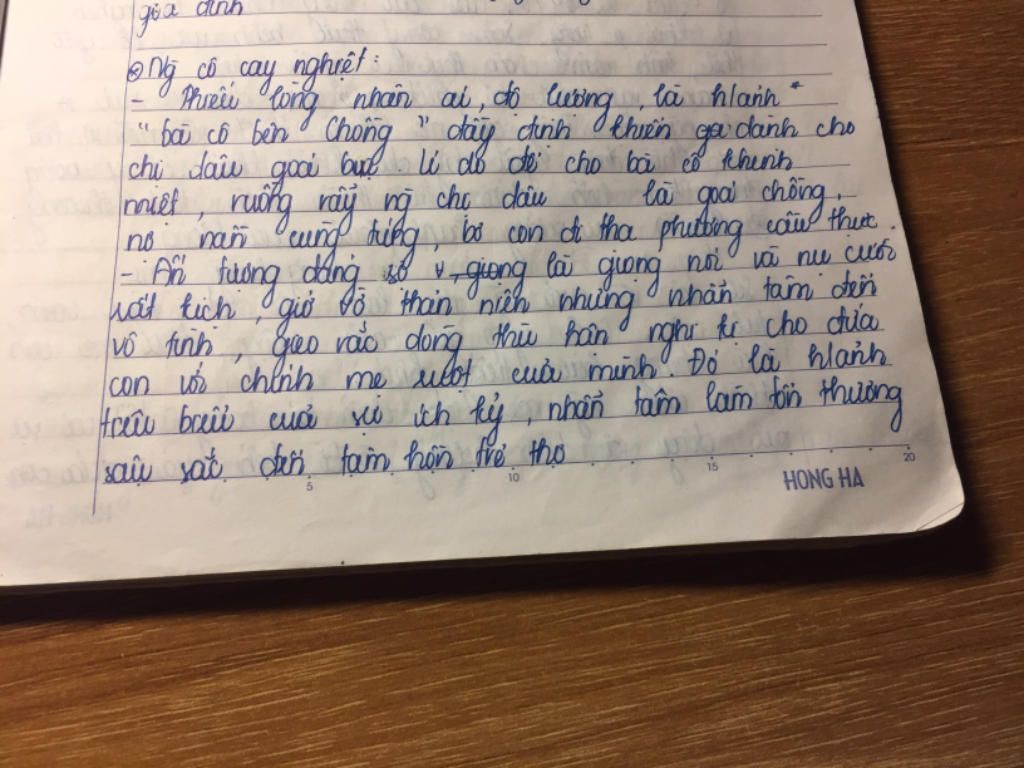 gia đình
⊗ Ng cô cay nghiệt:
- Thiếu lòng nhân ai, độ lượng, là h/ảnh
"bà cô bên chồng" đầy định khiến gđ dành cho
chị dâu goá bụa. lí do để cho bà cô khinh
miệt, ruồng rẫy ng chị dâu là goá chồng,
nợ nần cùng túng, bỏ con đi tha phương cầu thực.
- Ấn tượng đáng sợ v giọng là giọng nói và nụ cười
rất kịch, giả vờ thản niên nhưng nhẫn tâm đến
vô tình, gieo rắc dòng thù hận nghi kị cho đứa
con với chính mẹ ruột của mình. Đó là h/ảnh
tiêu biểu của sự ích kỷ, nhẫn tâm làm tổn thương
sâu sắc đến tâm hồn trẻ thơ
5 10 15 20
HONG HA